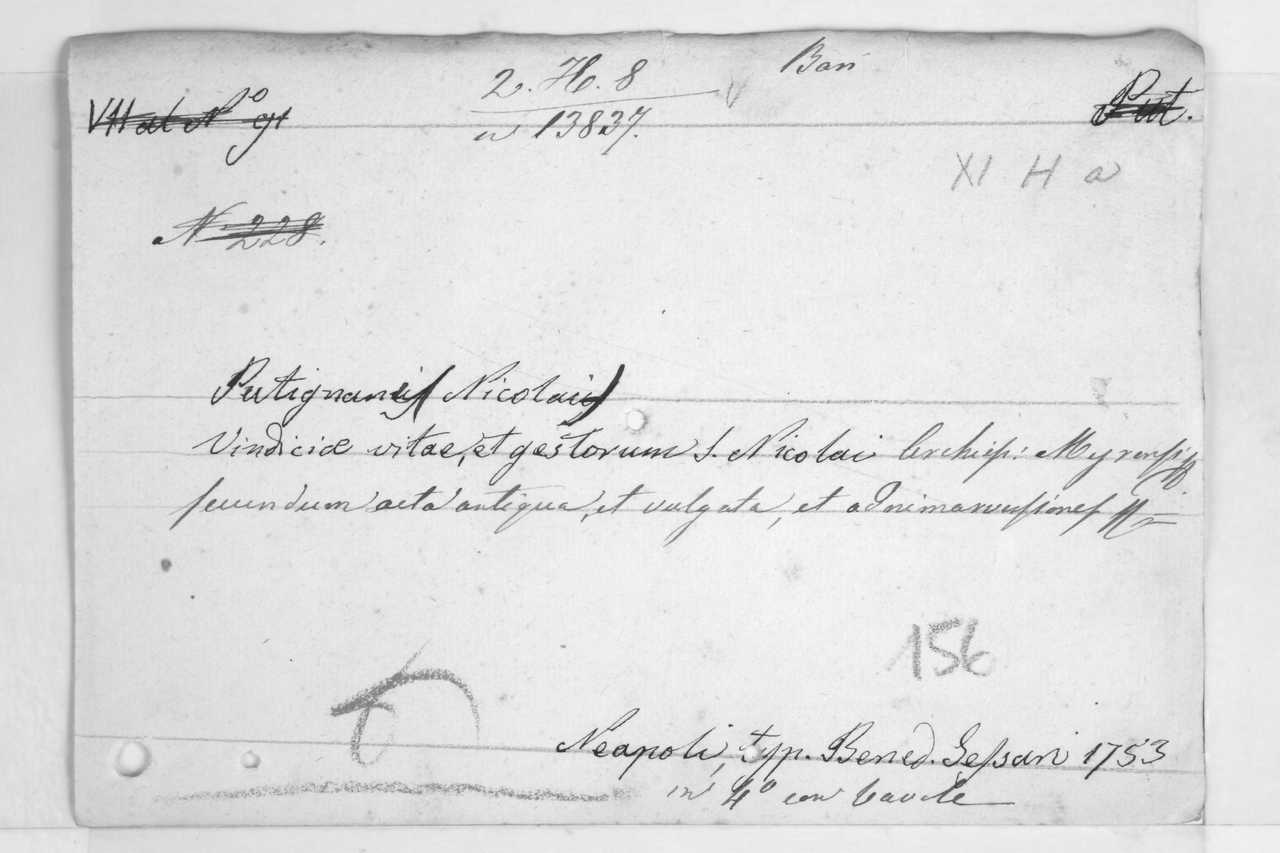 Bari
2. H. 8
n 13837.
Put.
XI H a
N. 228.
Putignani (Nicolai)
Vindiciæ vitae, et gestorum S. Nicolai Archiep: Myrensis
secundum acta antiqua, et vulgata, et adnimaversiones
156
Neapoli, typ. Bened. Gessari 1753
in 4º con tavole